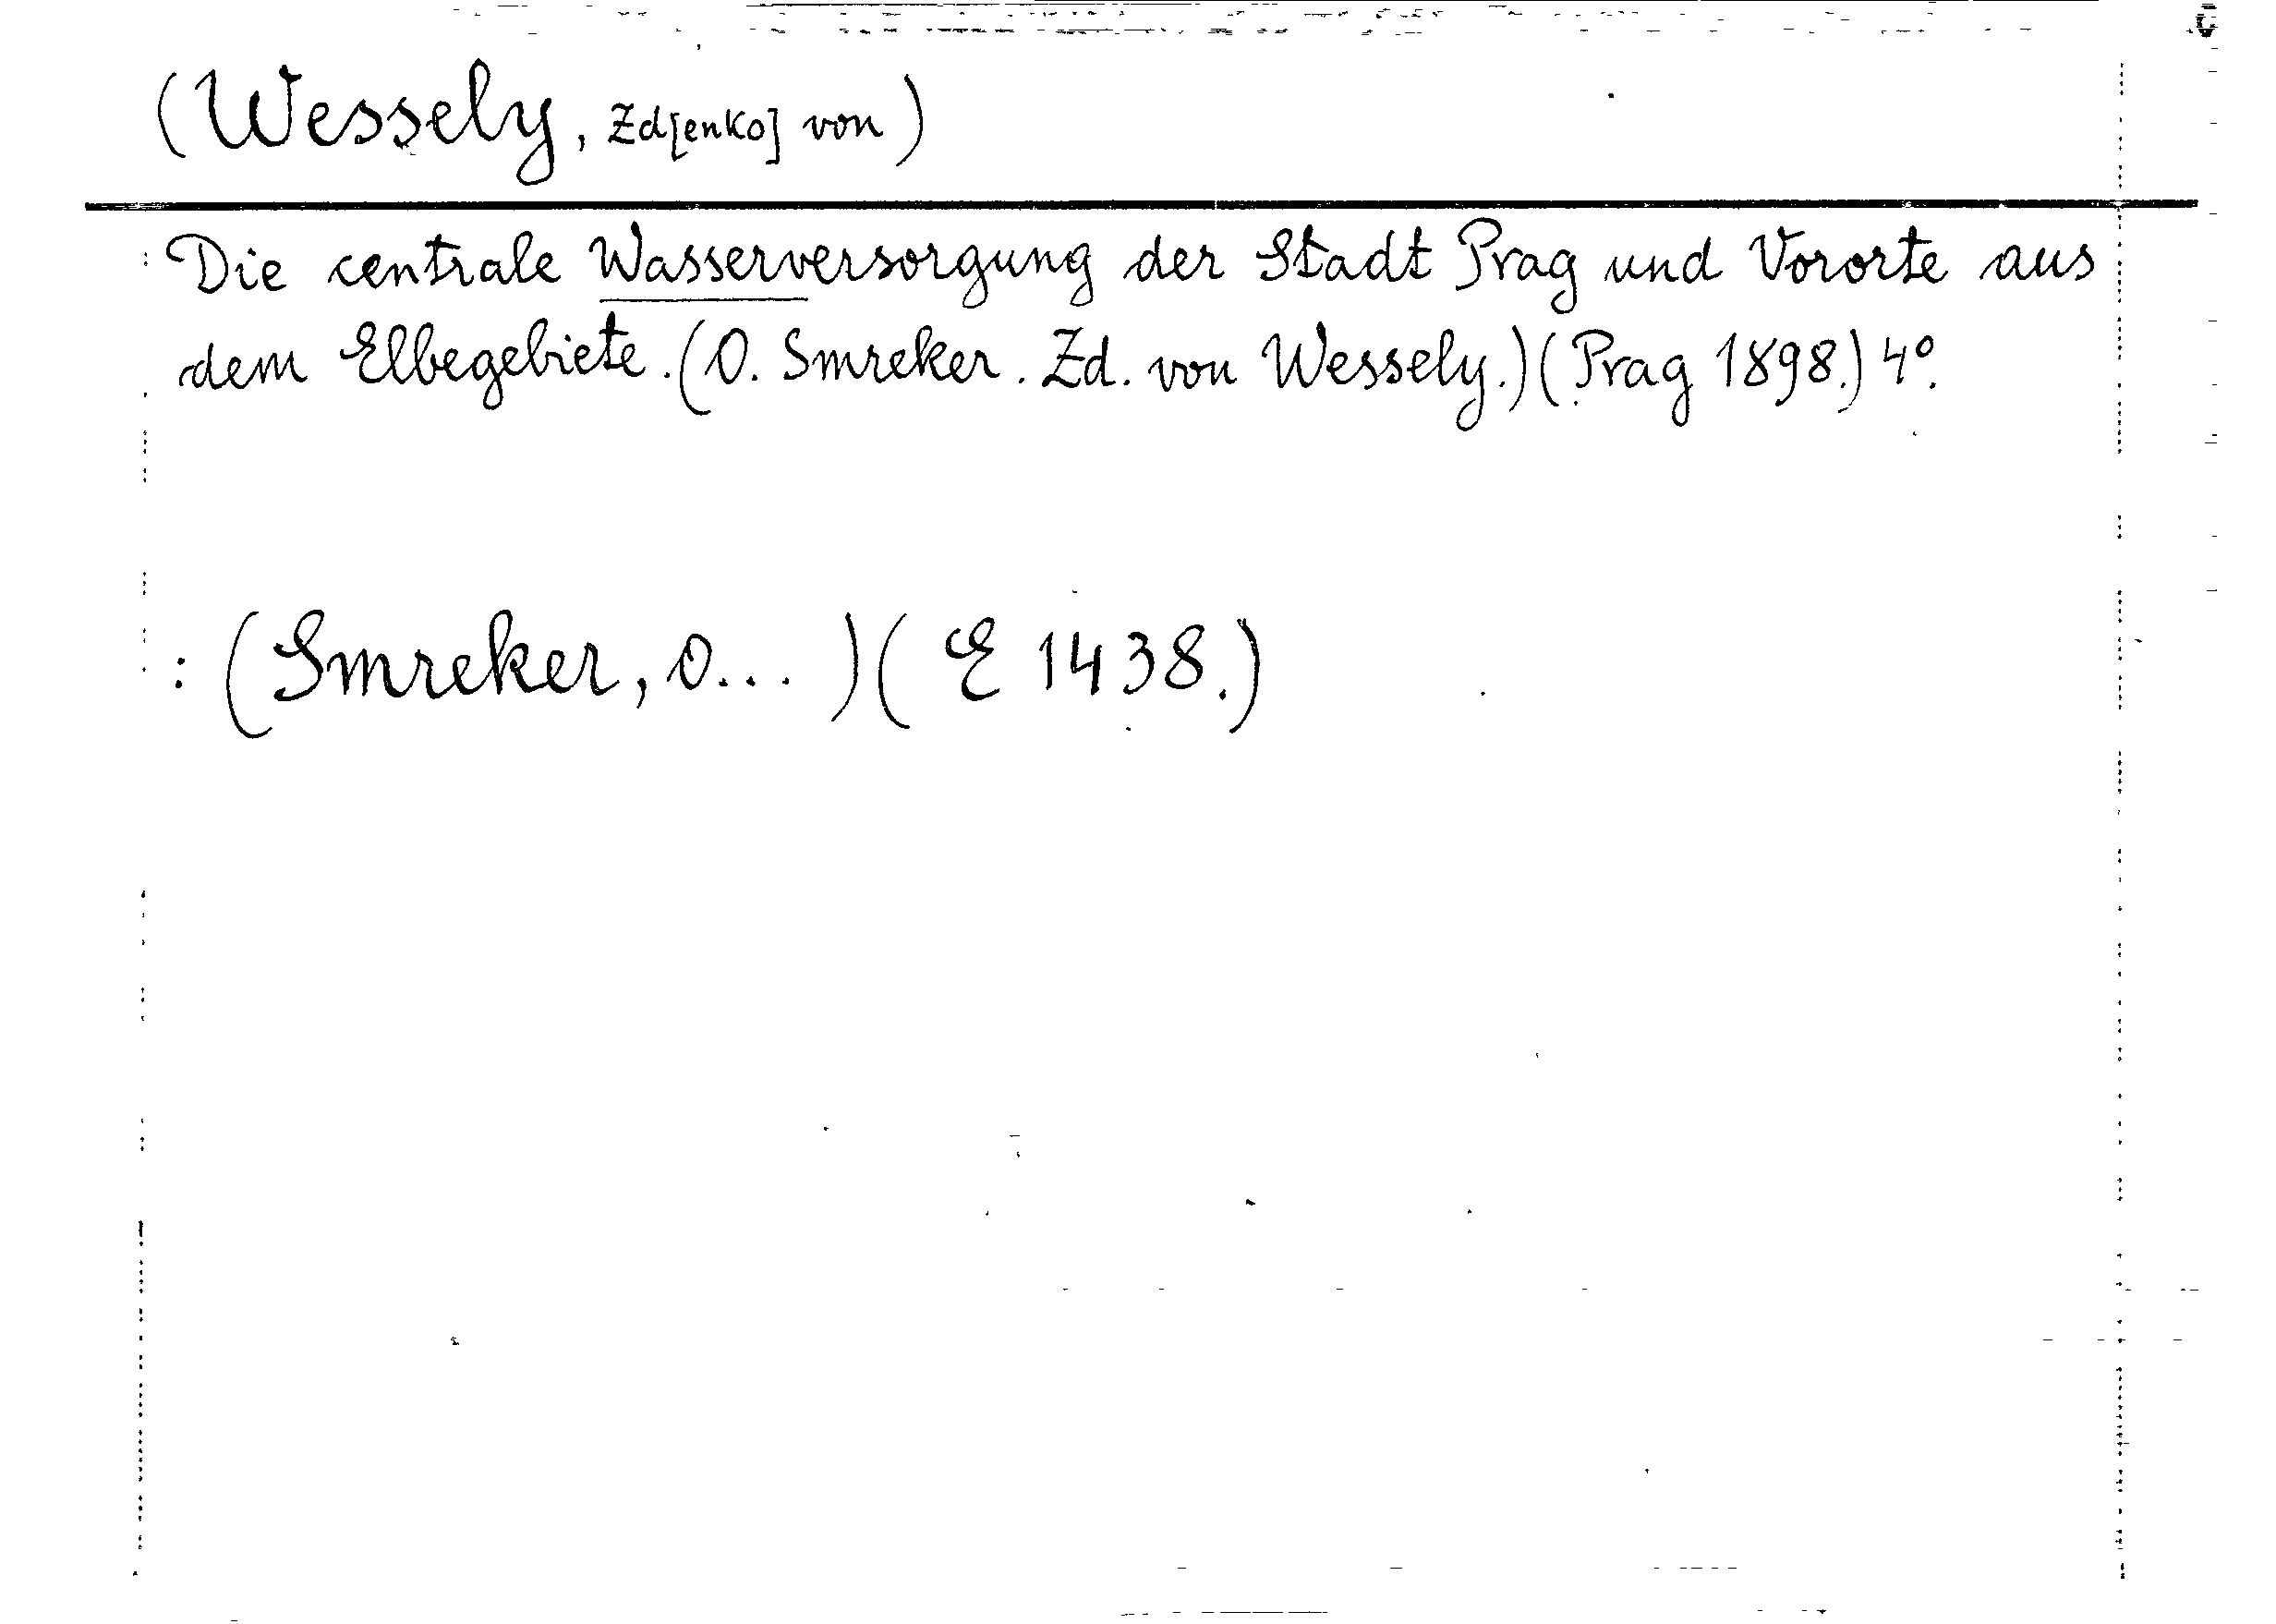 (Wessely, Zd[enko] von)
Die centrale Wasserversorgung der Stadt Prag und Vororte aus
dem Elbegebiete. (O. Smreker. Zd. von Wessely.) (Prag 1898.) 4°.
: (Smreker, O... ) ( E 1438.)